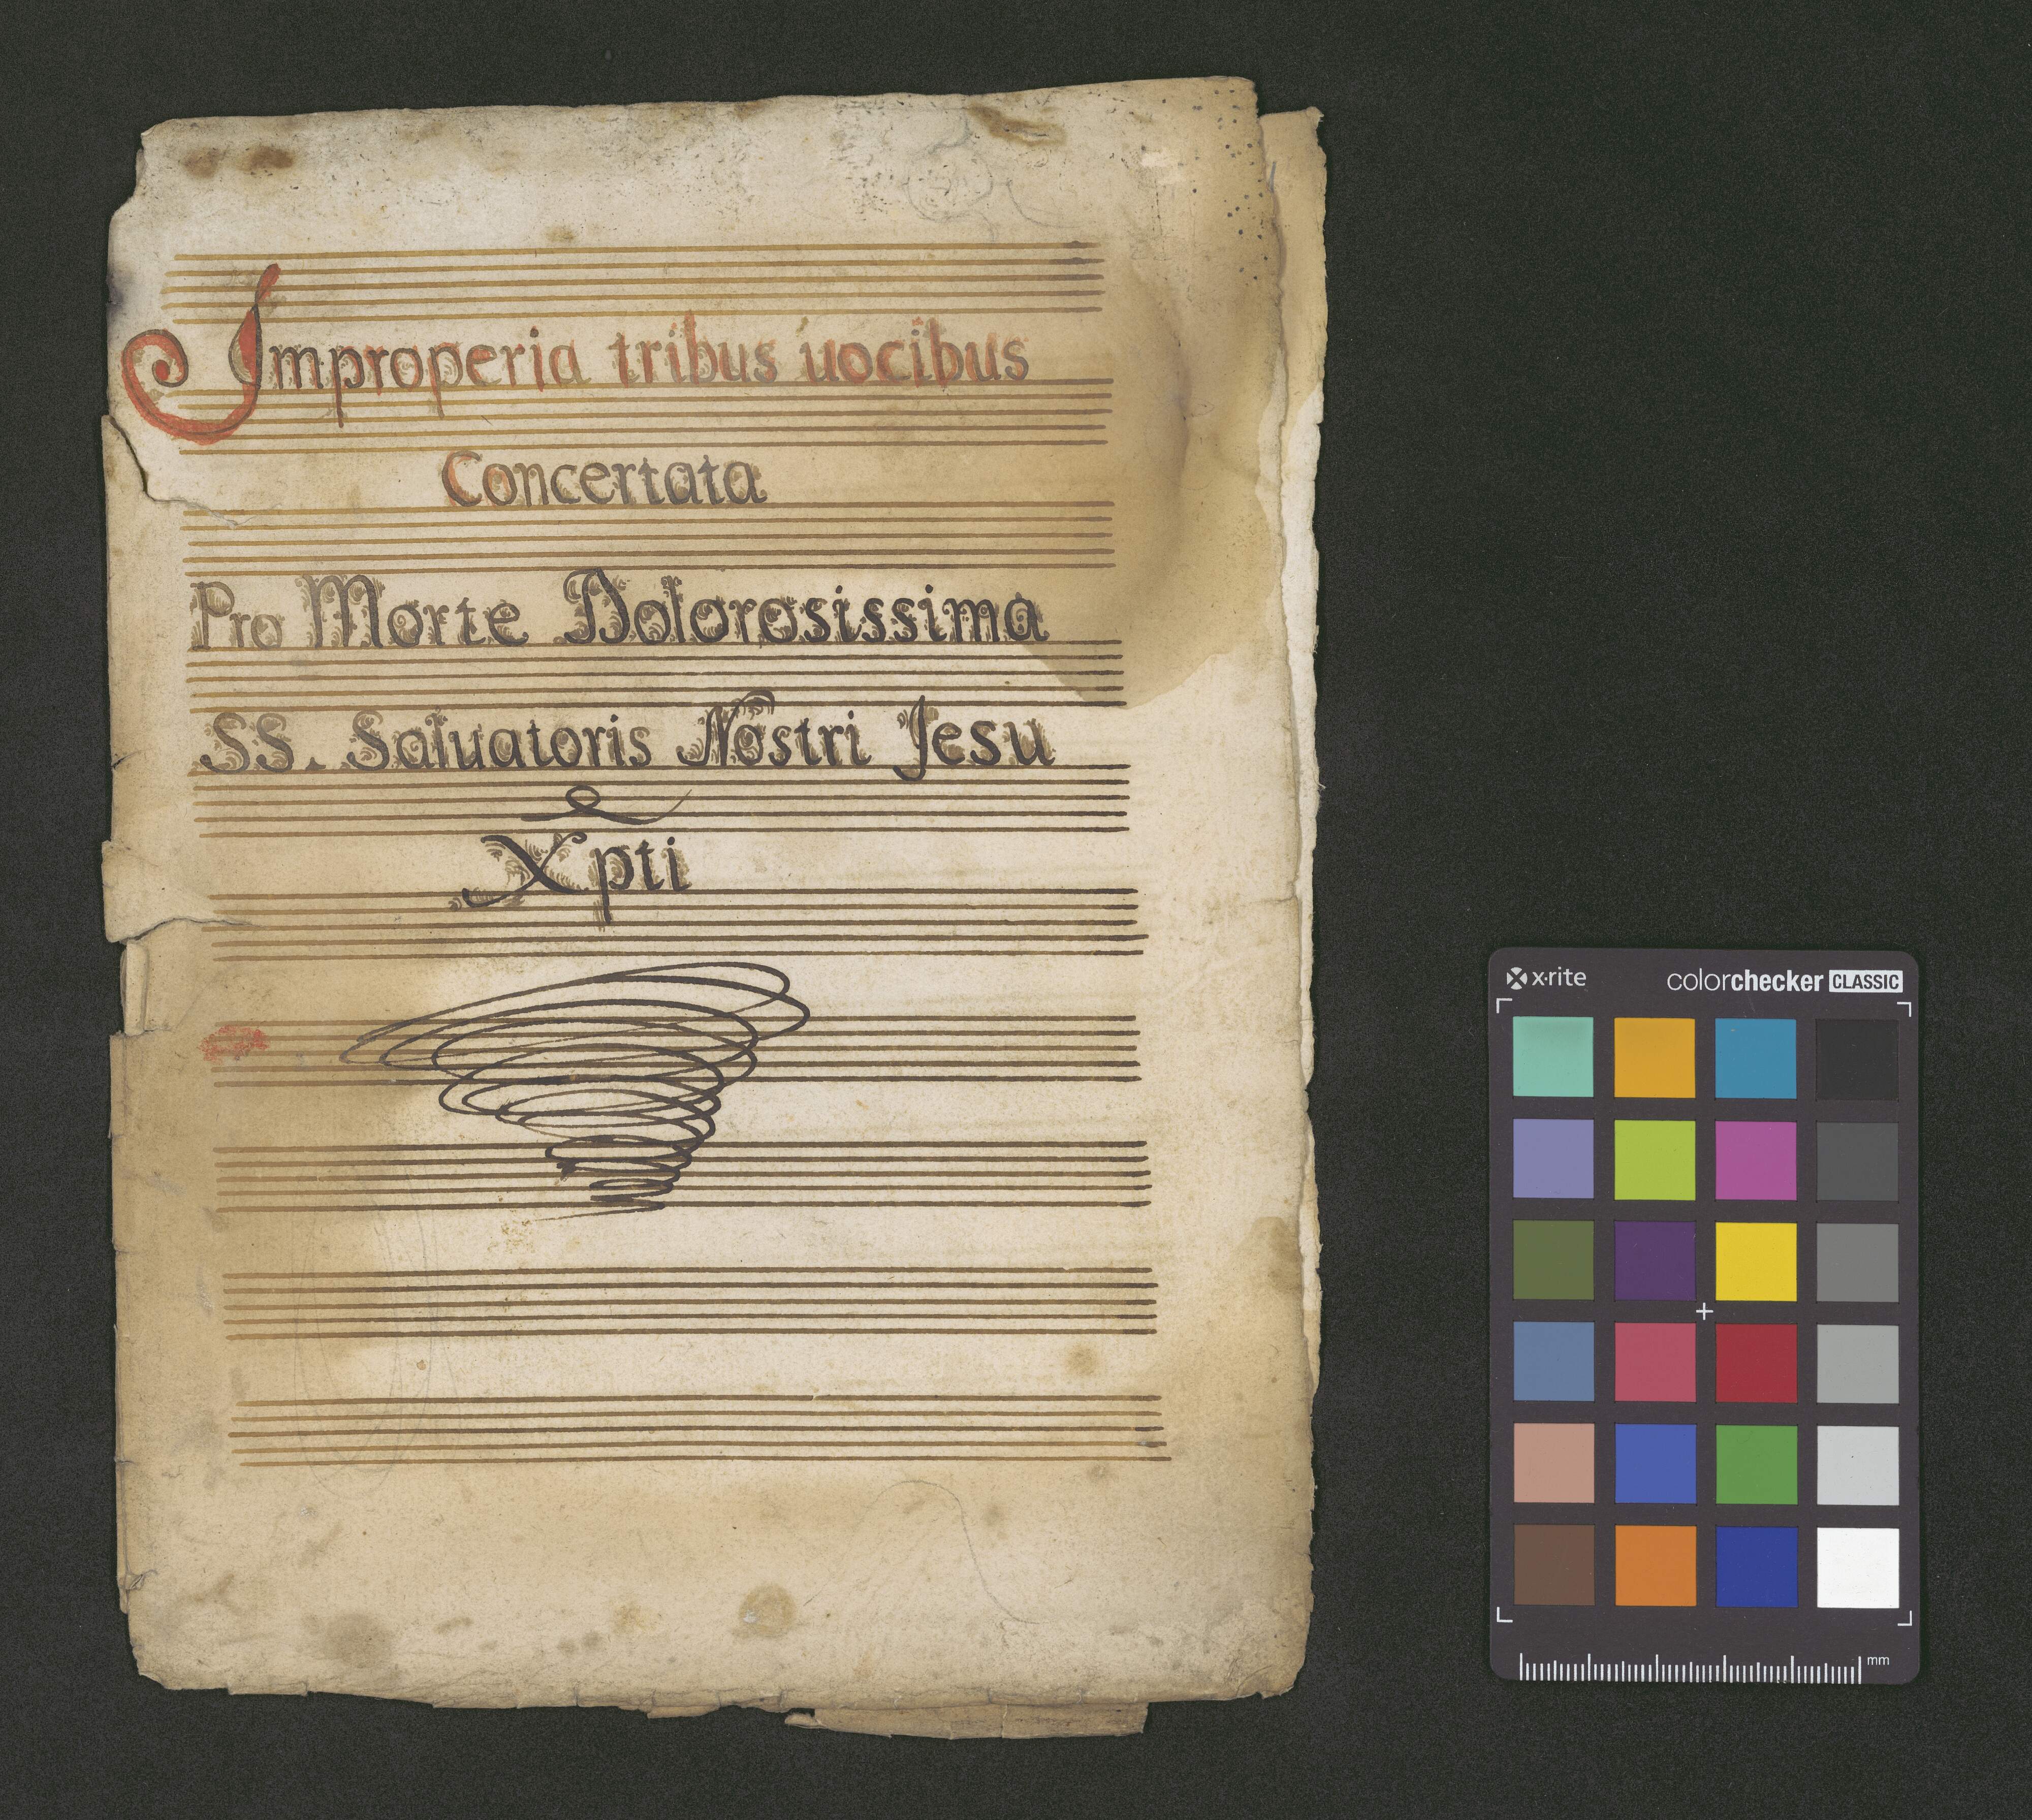 Improperia tribus uocibus
Concertata
Pro Morte Dolorosissima
SS. Saluatoris Nostri Jesu
Xpti
x·rite colorchecker CLASSIC
mm